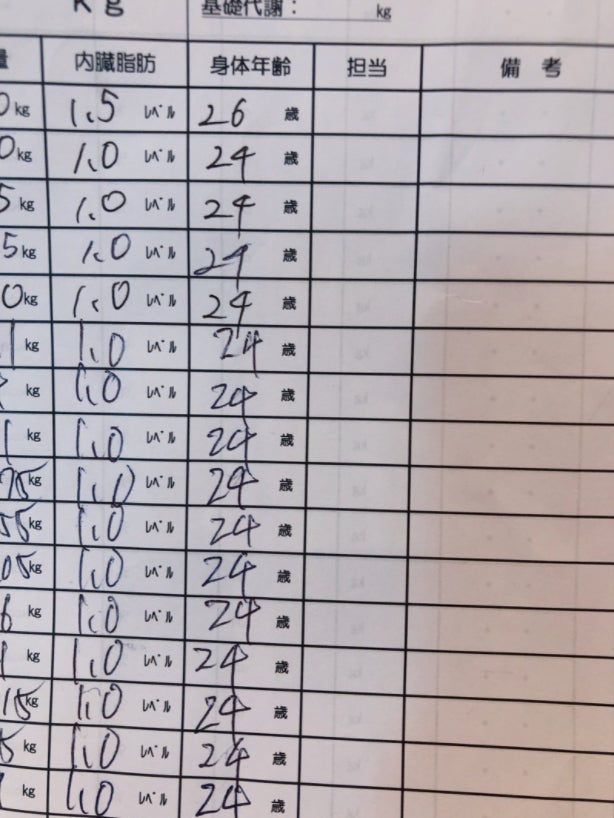 Kg 基礎代謝： kg
量 内臓脂肪 身体年齢 担当 備考
0kg 1.5 ﾚﾍﾞﾙ 26 歳
0kg 1.0 ﾚﾍﾞﾙ 24 歳
5kg 1.0 ﾚﾍﾞﾙ 24 歳
5kg 1.0 ﾚﾍﾞﾙ 24 歳
0kg 1.0 ﾚﾍﾞﾙ 24 歳
1kg 1.0 ﾚﾍﾞﾙ 24 歳
kg 1.0 ﾚﾍﾞﾙ 24 歳
1kg 1.0 ﾚﾍﾞﾙ 24 歳
75kg 1.0 ﾚﾍﾞﾙ 24 歳
55kg 1.0 ﾚﾍﾞﾙ 24 歳
05kg 1.0 ﾚﾍﾞﾙ 24 歳
6kg 1.0 ﾚﾍﾞﾙ 24 歳
kg 1.0 ﾚﾍﾞﾙ 24 歳
15kg 1.0 ﾚﾍﾞﾙ 24 歳
5kg 1.0 ﾚﾍﾞﾙ 24 歳
kg 1.0 ﾚﾍﾞﾙ 24 歳